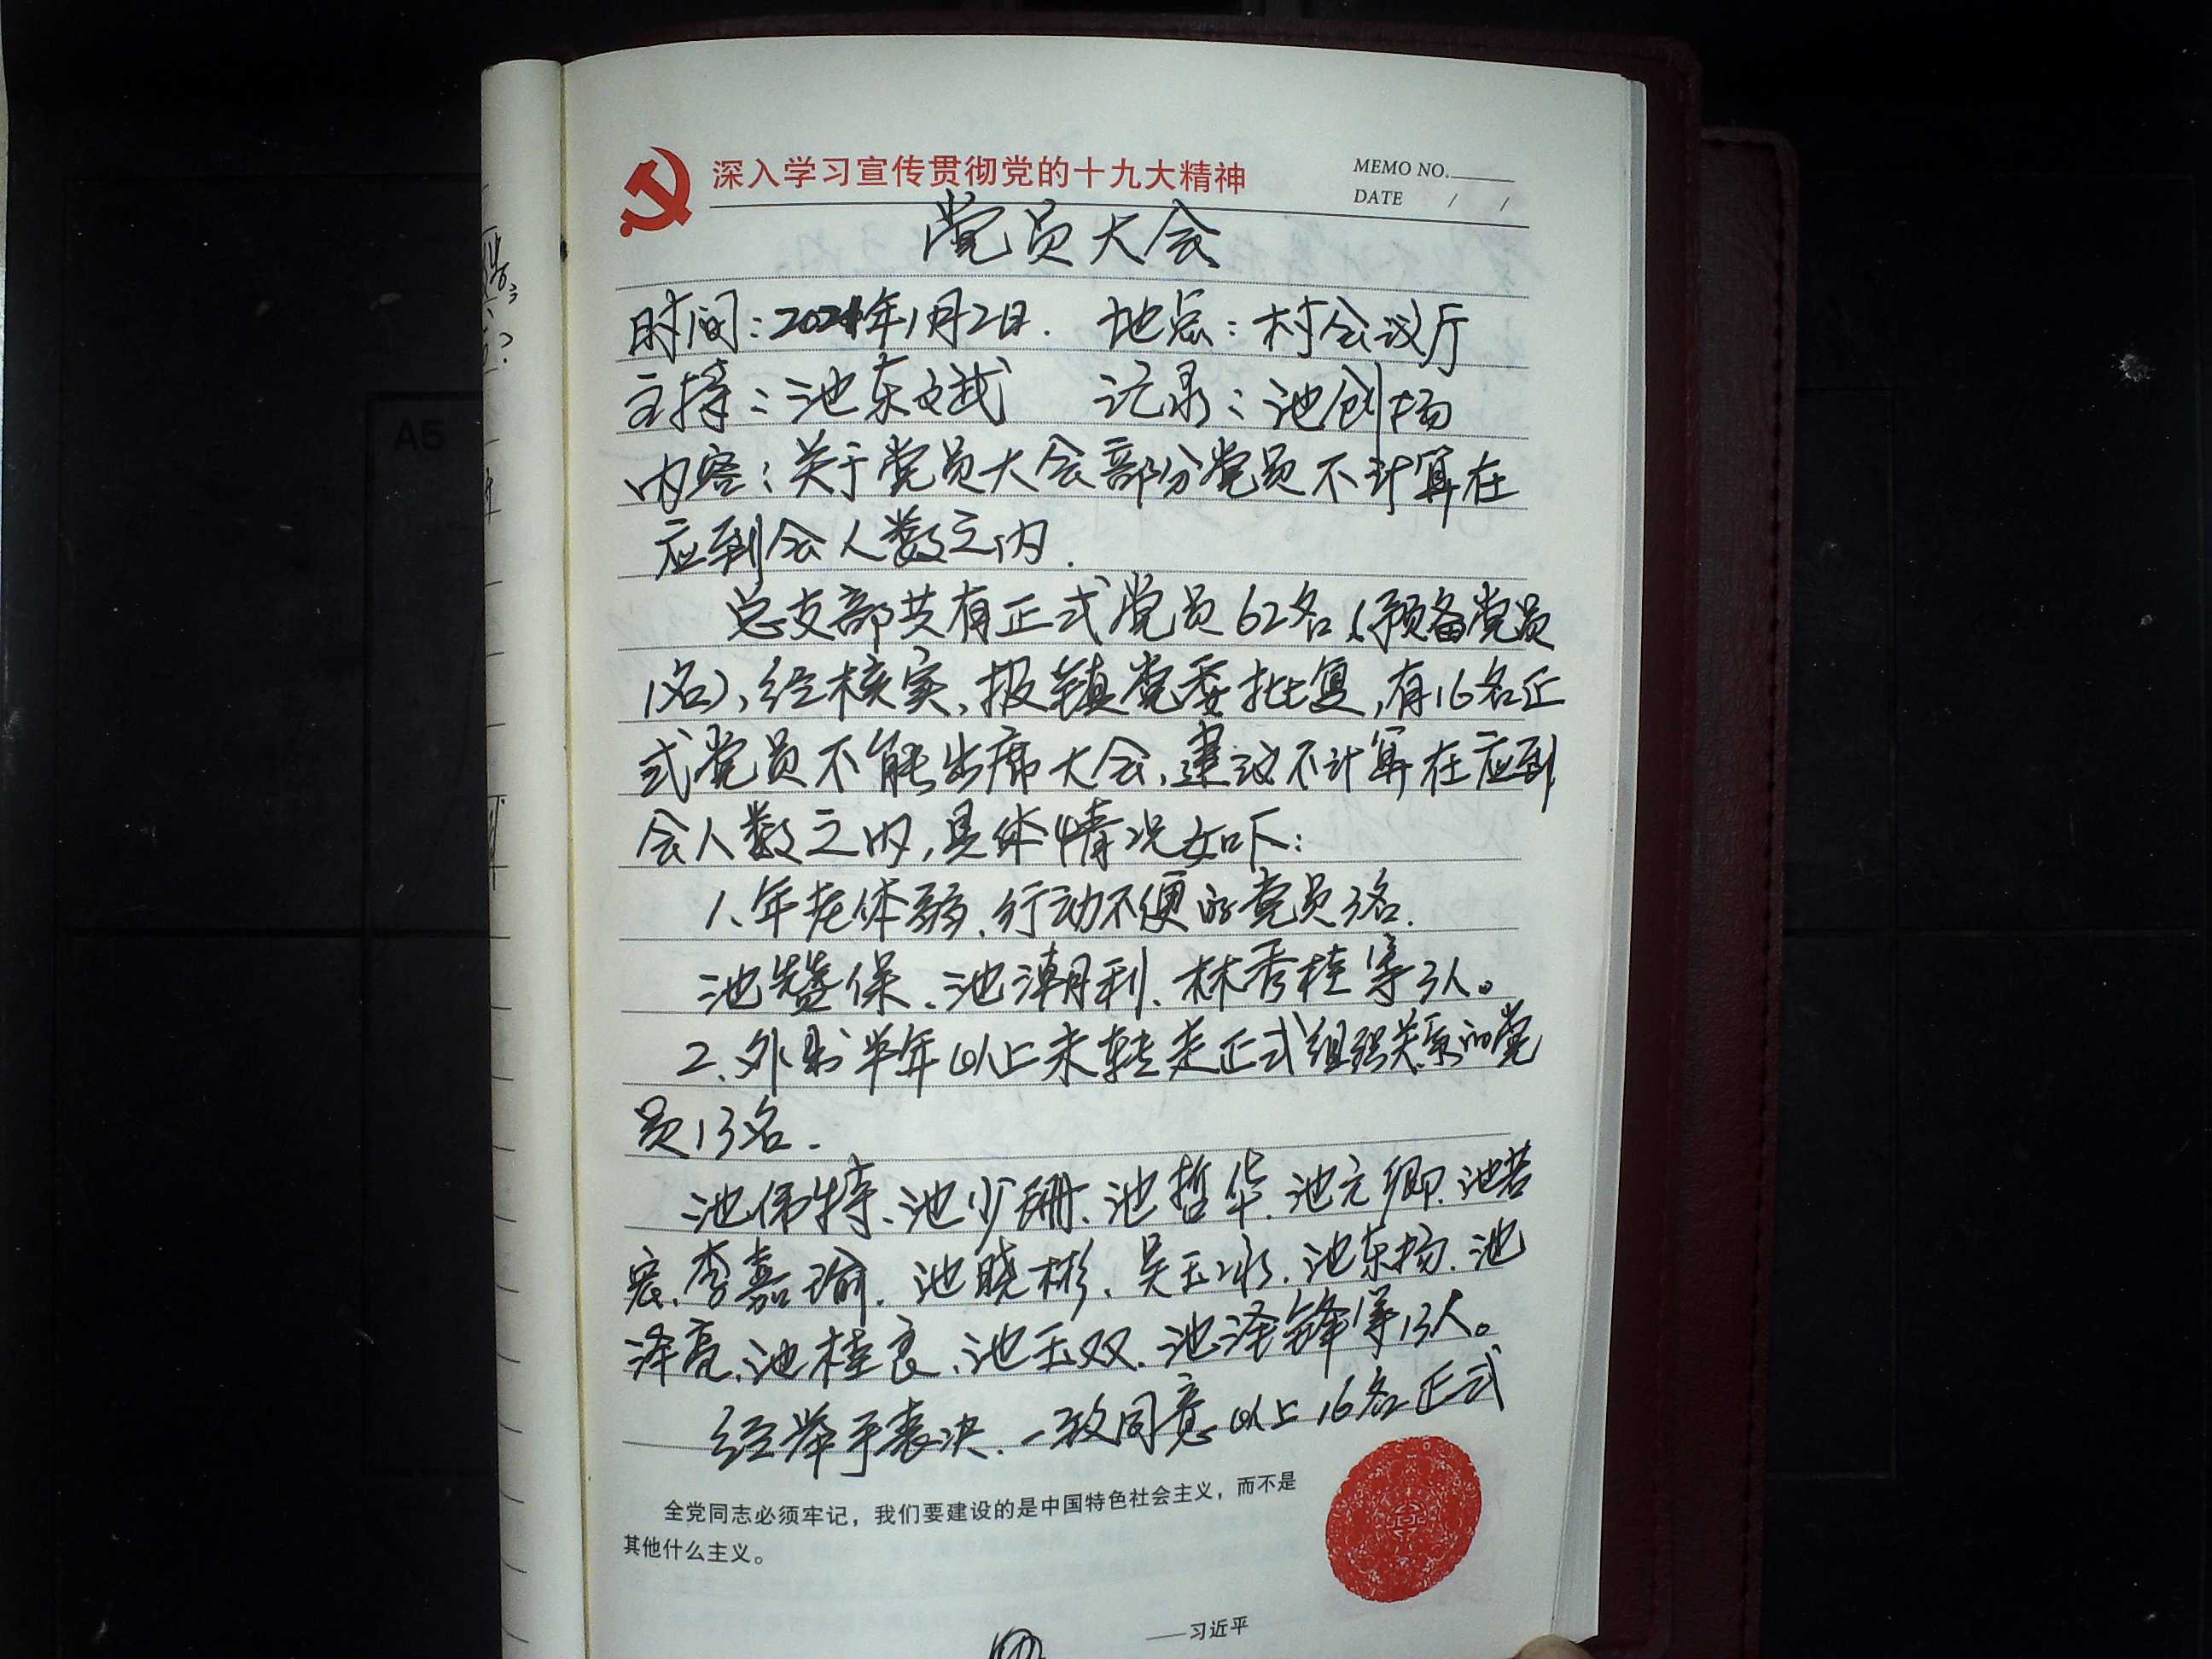 深入学习宣传贯彻党的十九大精神
MEMO NO.
DATE / /
党员大会
时间：2021年1月2日. 地点：村会议厅
主持：池东斌 记录：池创扬
内容：关于党员大会部分党员不计算在
应到会人数之内.
总支部共有正式党员62名（预备党员
1名），经核实、报镇党委批复，有16名正
式党员不能出席大会，建议不计算在应到
会人数之内，具体情况如下：
1、年老体弱、行动不便的党员3名.
池 保、池潮利、林秀桂等3人。
2、外出半年以上未转走正式组织关系的党
员13名.
池伟特、池少珊、池哲华、池元卿、池若
宏、李嘉瑜、池晓彬、吴玉 、池东扬、池
泽亮、池桂良、池玉双、池泽锋等13人。
经举手表决、一致同意以上16名正式
全党同志必须牢记，我们要建设的是中国特色社会主义，而不是
其他什么主义。
——习近平